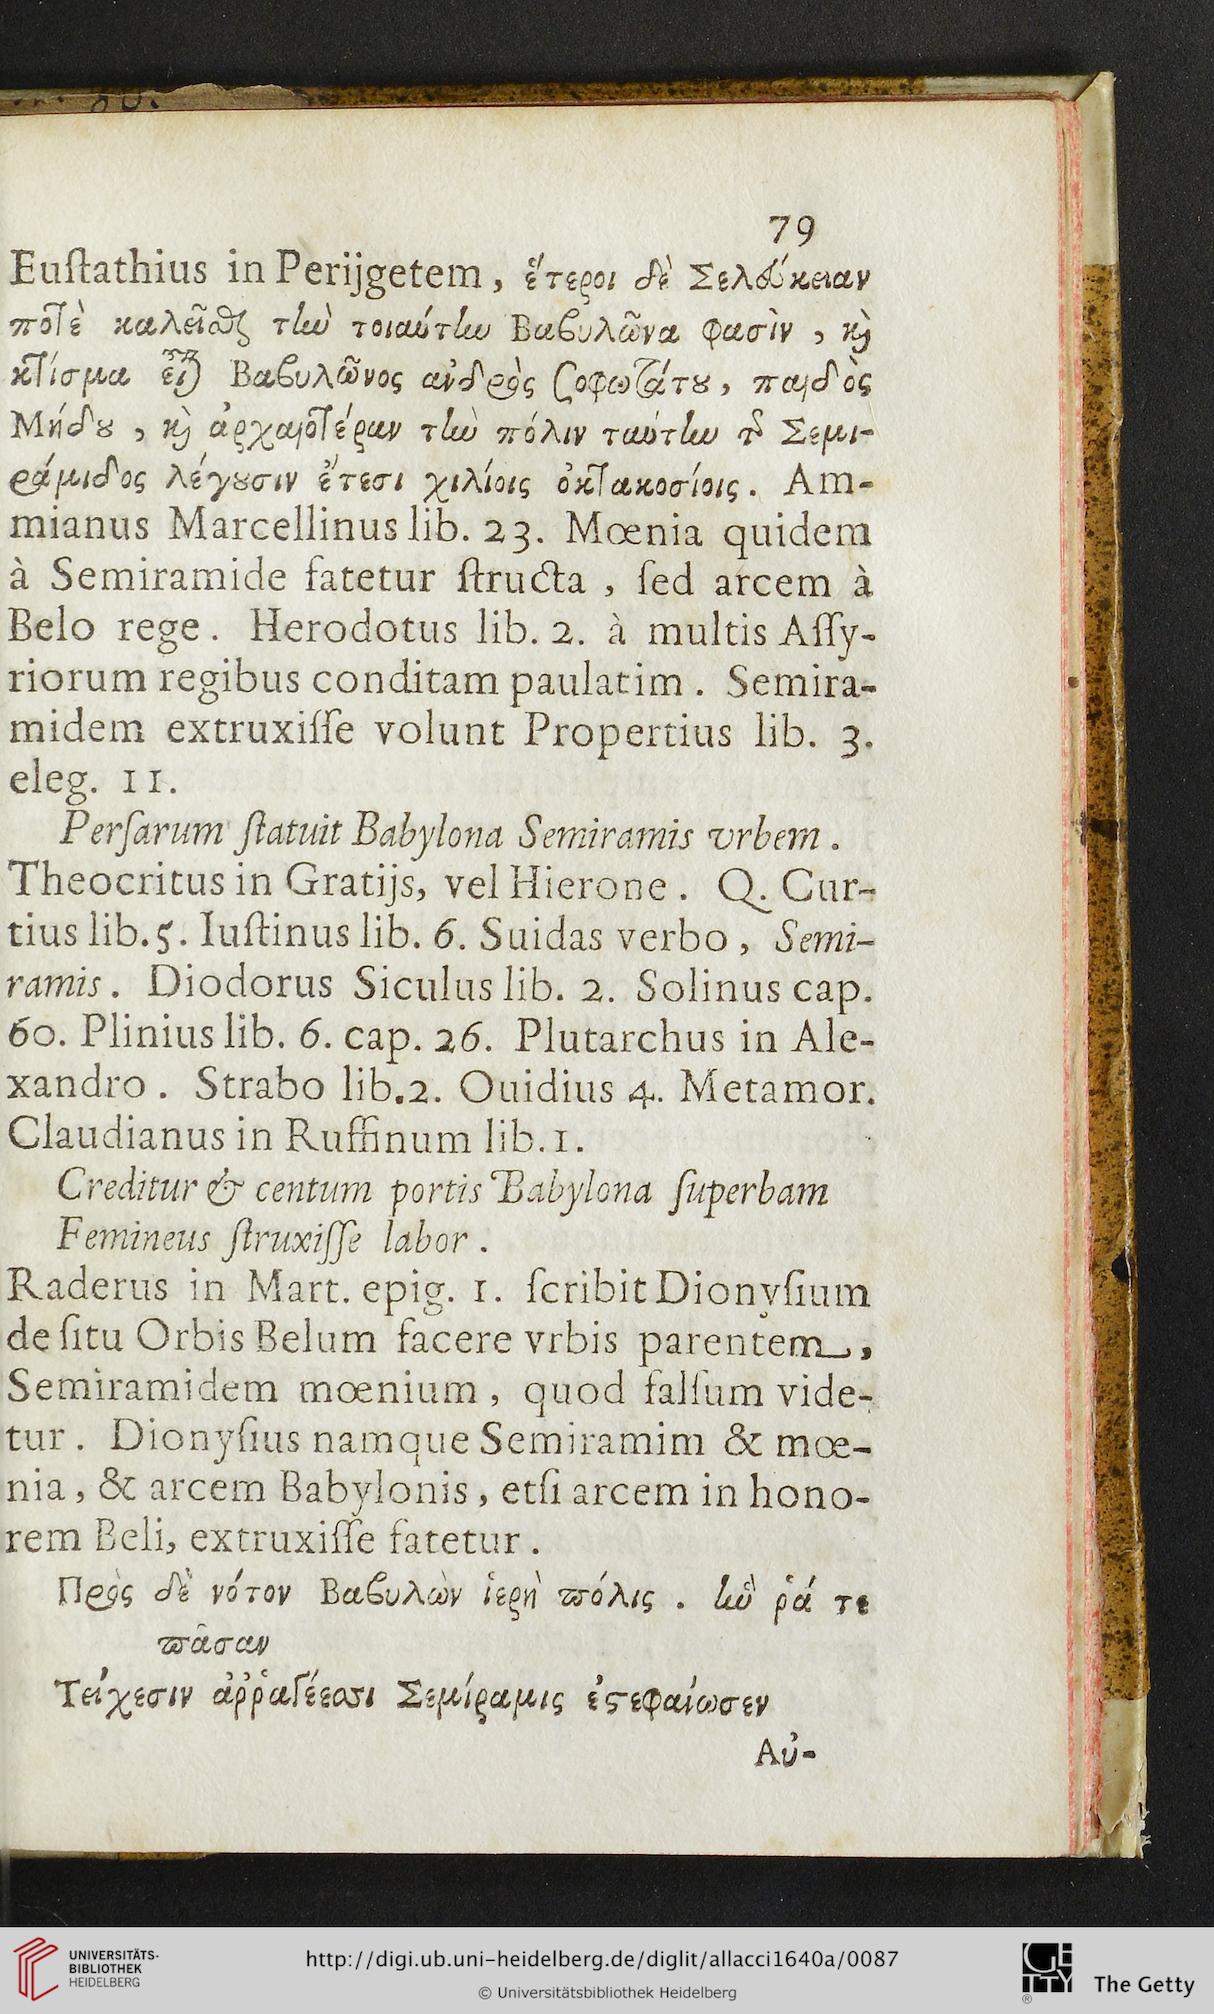 79
Euſtathius in Perijgetem, ἕτεροι δὲ Σελεύκειαν
ποτὲ καλεῖσθαι τὴν τοιαύτην Βαβυλῶνα φασὶν, καὶ
κτίσμα εἶναι Βαβυλῶνος ἀνδρὸς σοφωτάτου, παιδὸς
Μήδου, καὶ ἀρχαιοτέραν τὴν πόλιν ταύτην τῆς Σεμι-
ράμιδος λέγουσιν ἔτεσι χιλίοις ὀκτακοσίοις. Am-
mianus Marcellinus lib. 23. Mœnia quidem
à Semiramide fatetur ſtructa, ſed arcem à
Belo rege. Herodotus lib. 2. à multis Aſſy-
riorum regibus conditam paulatim. Semira-
midem extruxiſſe volunt Propertius lib. 3.
eleg. 11.
Perſarum ſtatuit Babylona Semiramis vrbem.
Theocritus in Gratijs, vel Hierone. Q. Cur-
tius lib. 5. Iuſtinus lib. 6. Suidas verbo, Semi-
ramis. Diodorus Siculus lib. 2. Solinus cap.
60. Plinius lib. 6. cap. 26. Plutarchus in Ale-
xandro. Strabo lib. 2. Ouidius 4. Metamor.
Claudianus in Ruffinum lib. 1.
Creditur & centum portis Babylona ſuperbam
Femineus ſtruxiſſe labor.
Raderus in Mart. epig. 1. ſcribit Dionyſium
de ſitu Orbis Belum facere vrbis parentem,
Semiramidem mœnium, quod falſum vide-
tur. Dionyſius namque Semiramim & mœ-
nia, & arcem Babylonis, etſi arcem in hono-
rem Beli, extruxiſſe fatetur.
Πρὸς δὲ νότον Βαβυλὼν ἱερὴ πόλις. ἣν ῥά τε
πᾶσαν
Τείχεσιν ἀῤῥαγέεσσι Σεμίραμις ἐστεφαίωσεν
Αὐ-
UNIVERSITÄTS-
BIBLIOTHEK
HEIDELBERG
http://digi.ub.uni-heidelberg.de/diglit/allacci1640a/0087
© Universitätsbibliothek Heidelberg
GETTY
The Getty